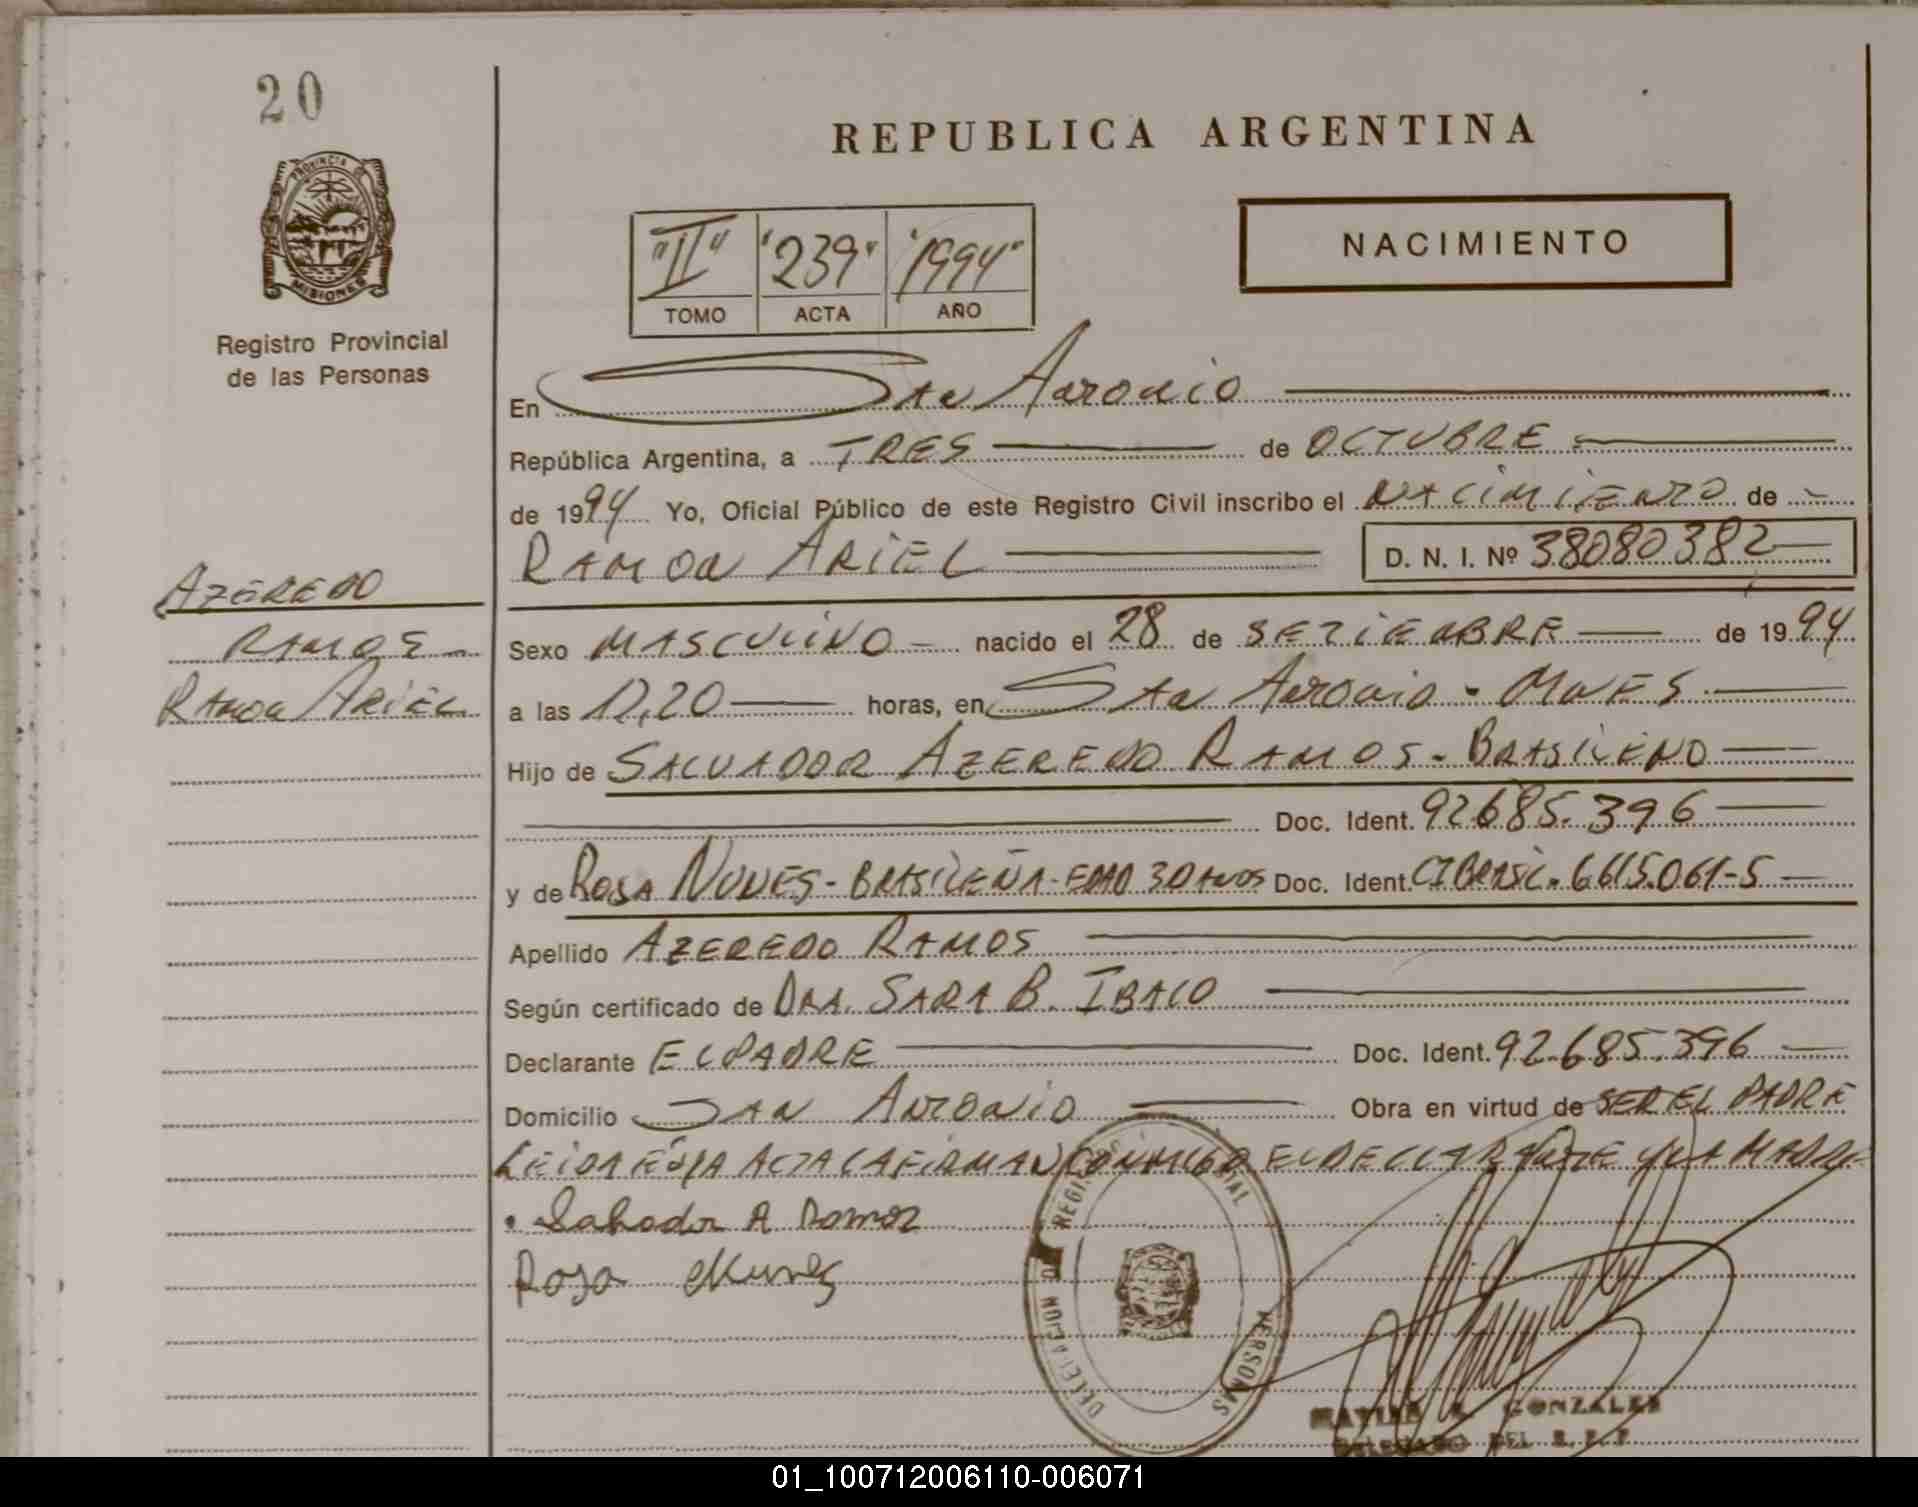 20
PROVINCIA DE
MISIONES
Registro Provincial
de las Personas
AZEREDO
RAMOS
RAMON ARIEL
REPUBLICA ARGENTINA
"II" "239" "1994"
TOMO ACTA AÑO
NACIMIENTO
En San Antonio
República Argentina, a TRES de OCTUBRE
de 1994 Yo, Oficial Público de este Registro Civil inscribo el NACIMIENTO de
RAMON ARIEL D. N. I. Nº 38080382
Sexo MASCULINO nacido el 28 de SETIEMBRE de 1994
a las 12,20 horas, en San Antonio - MNES
Hijo de SALVADOR AZEREDO RAMOS - BRASILENO
Doc. Ident. 92685.396
y de ROSA NUNES - BRASILEÑA - EDAD 30 AÑOS Doc. Ident. CI BRASIL. 6615.061-5
Apellido AZEREDO RAMOS
Según certificado de DRA. SARA B. IBALO
Declarante EL PADRE Doc. Ident. 92.685.396
Domicilio SAN ANTONIO Obra en virtud de SER EL PADRE
LEIDA ESTA ACTA LA FIRMAN CONMIGO EL DECLARANTE Y LA MADRE
Salvador A Ramos
Rosa Nunes
DELEGACION REGISTRO PROVINCIAL PERSONAS
GONZALEZ
DELEGADO DEL R. P. P.
01_100712006110-006071